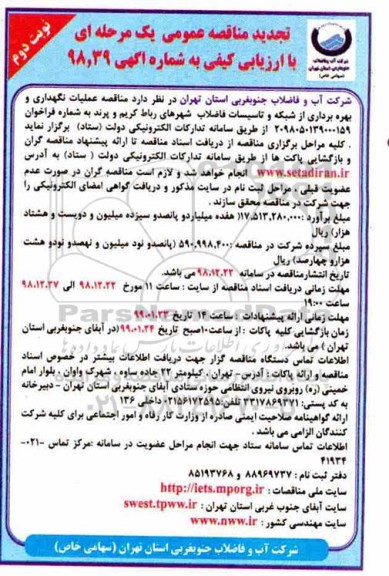 نوبت دوم
تجدید مناقصه عمومی یک مرحله ای
با ارزیابی کیفی به شماره آگهی ۹۸,۳۹
شرکت آب و فاضلاب
جنوبغربی استان تهران
(سهامی خاص)
شرکت آب و فاضلاب جنوبغربی استان تهران در نظر دارد مناقصه عملیات نگهداری و
بهره برداری از شبکه و تاسیسات فاضلاب شهرهای رباط کریم و پرند به شماره فراخوان
۲۰۹۸۰۵۰۱۳۹۰۰۰۱۵۹ از طریق سامانه تدارکات الکترونیکی دولت (ستاد) برگزار نماید
. کلیه مراحل برگزاری مناقصه از دریافت اسناد مناقصه تا ارائه پیشنهاد مناقصه گران
و بازگشایی پاکت ها از طریق سامانه تدارکات الکترونیکی دولت ( ستاد) به آدرس
www.setadiran.ir انجام خواهد شد و لازم است مناقصه گران در صورت عدم
عضویت قبلی ، مراحل ثبت نام در سایت مذکور و دریافت گواهی امضای الکترونیکی را
جهت شرکت در مناقصه محقق سازند .
مبلغ برآورد :۱۷,۵۱۳,۲۸۰,۰۰۰( هفده میلیاردو پانصدو سیزده میلیون و دویست و هشتاد
هزار) ریال
مبلغ سپرده شرکت در مناقصه :۵۹۰,۹۹۸,۴۰۰ (پانصدو نود میلیون و نهصدو نودو هشت
هزارو چهارصد) ریال
تاریخ انتشارمناقصه در سامانه ۹۸.۱۲.۲۲ می باشد.
مهلت زمانی دریافت اسناد مناقصه از سایت : ساعت ۱۱ مورخ ۹۸.۱۲.۲۲ الی ۹۸.۱۲.۲۷
ساعت ۱۹:۰۰
مهلت زمانی ارائه پیشنهادات : ساعت ۱۴ تاریخ ۹۹.۰۱.۲۳
زمان بازگشایی کلیه پاکات : از ساعت۱۰صبح تاریخ ۹۹.۰۱.۲۴ (در آبفای جنوبغربی استان
تهران ) می باشد.
اطلاعات تماس دستگاه مناقصه گزار جهت دریافت اطلاعات بیشتر در خصوص اسناد
مناقصه و ارائه پاکات : آدرس - تهران ، کیلومتر ۲۲ جاده ساوه ، شهرک واوان ، بلوار امام
خمینی (ره) روبروی نیروی انتظامی حوزه ستادی آبفای جنوبغربی استان تهران - دبیرخانه
به کد پستی: ۳۳۱۷۸۶۹۳۷۱ تلفن:۰۲۱۵۶۱۷۲۵۹۵ داخلی ۱۳۶
ارائه گواهینامه صلاحیت ایمنی صادره از وزارت کار رفاه و امور اجتماعی برای کلیه شرکت
کنندگان الزامی می باشد .
اطلاعات تماس سامانه ستاد جهت انجام مراحل عضویت در سامانه :مرکز تماس ۰۲۱-
۴۱۹۳۴
دفتر ثبت نام : ۸۸۹۶۹۷۳۷ و ۸۵۱۹۳۷۶۸
سایت ملی مناقصات : http://iets.mporg.ir
سایت آبفای جنوب غربی استان تهران : swest.tpww.ir
سایت مهندسی کشور : www.nww.ir
شرکت آب و فاضلاب جنوبغربی استان تهران (سهامی خاص)